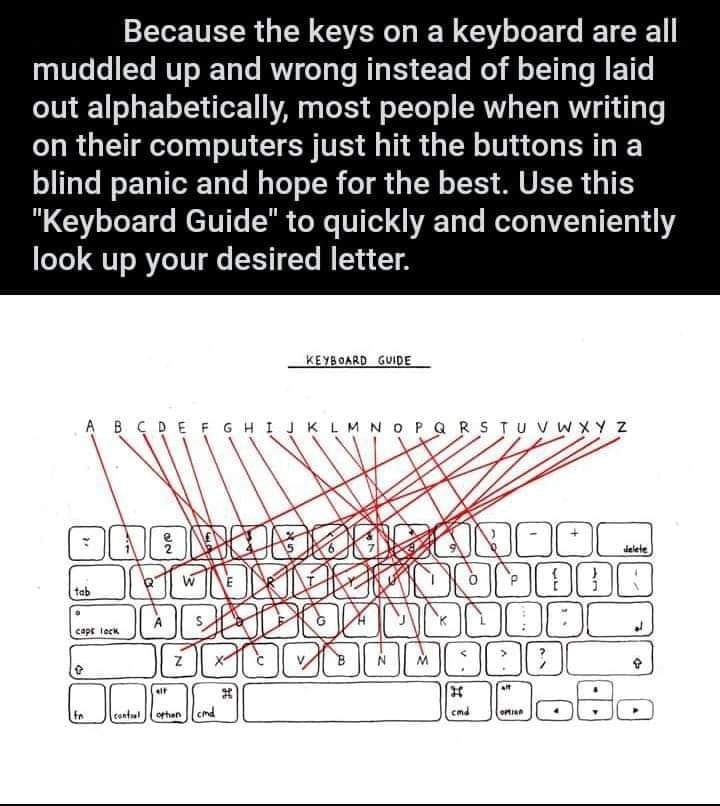 Because the keys on a keyboard are all
muddled up and wrong instead of being laid
out alphabetically, most people when writing
on their computers just hit the buttons in a
blind panic and hope for the best. Use this
"Keyboard Guide" to quickly and conveniently
look up your desired letter.
KEYBOARD GUIDE
A B C D E F G H I J K L M N O P Q R S T U V W X Y Z
~ ! 1 @ 2 £ 3 $ 4 % 5 ^ 6 & 7 * 8 9 ) 0 - + delete
tab Q W E R T Y U I O P { [ } ] \
caps lock A S D F G H J K L : ; "
Z X C V B N M < > ? /
fn control alt option ⌘ cmd ⌘ cmd alt option